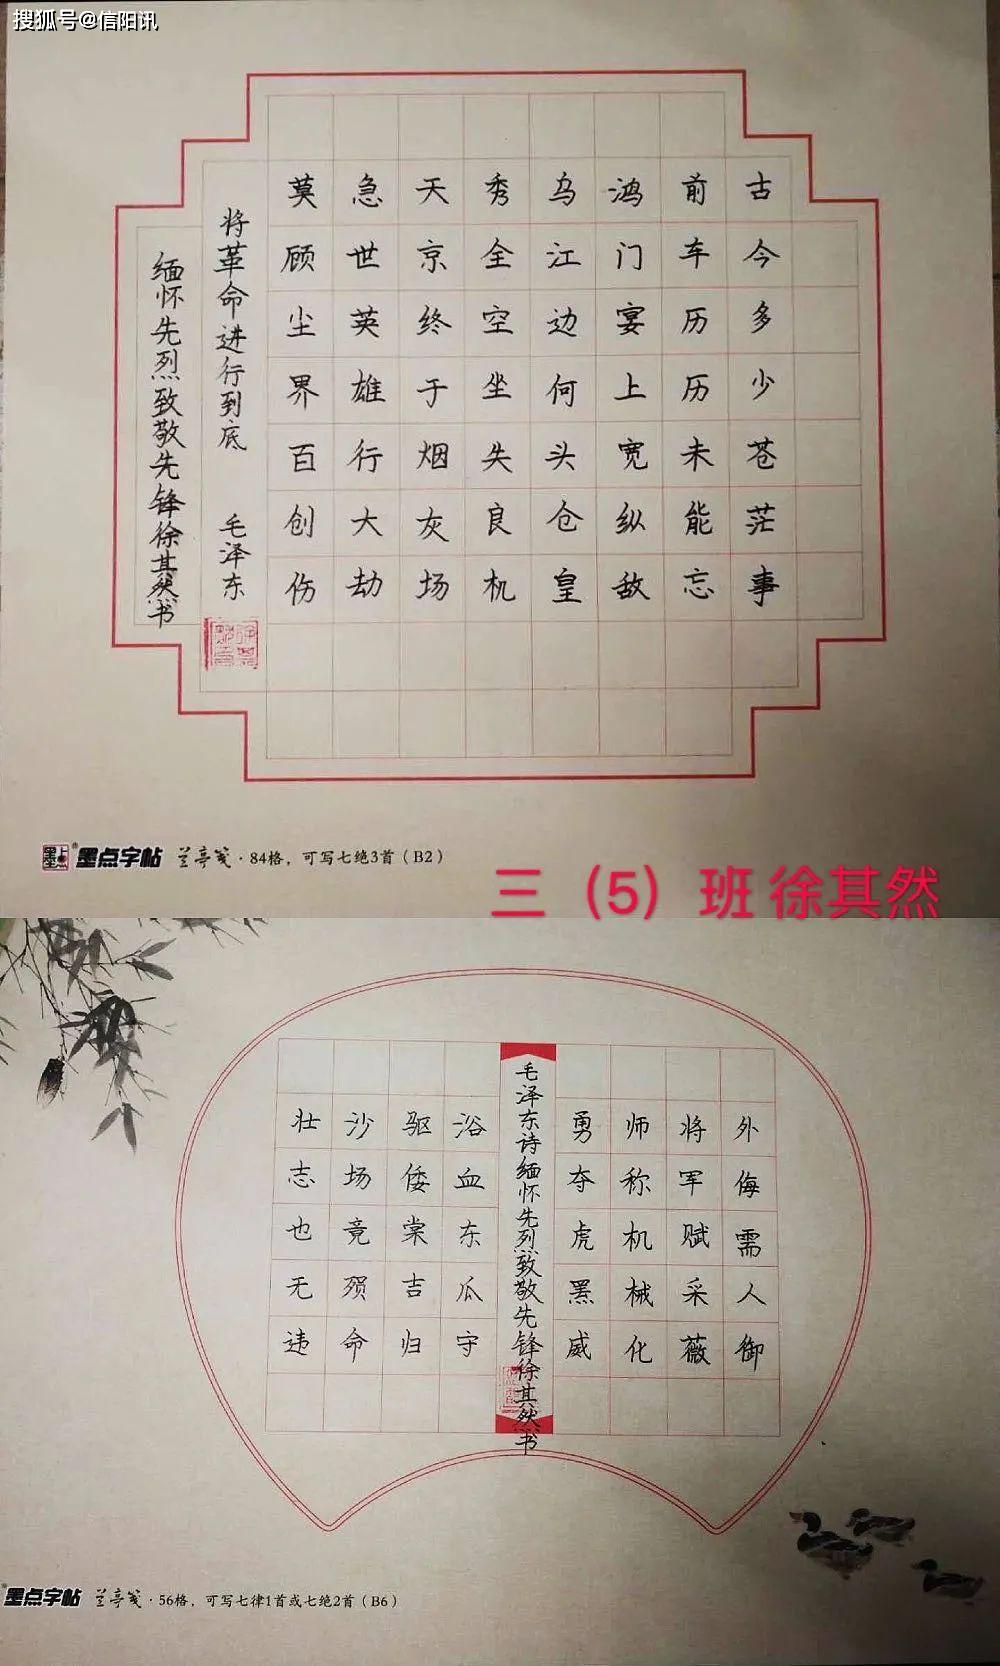 搜狐号@信阳讯
古今多少苍茫事
前车历历未能忘
鸿门宴上宽纵敌
乌江边何头仓皇
秀全空坐失良机
天京终于烟灰场
急世英雄行大劫
莫顾尘界百创伤
将革命进行到底 毛泽东
缅怀先烈致敬先锋徐其然书
墨点字帖 兰亭笺·84格，可写七绝3首（B2）
三（5）班 徐其然
外侮需人御
将军赋采薇
师称机械化
勇夺虎罴威
毛泽东诗缅怀先烈致敬先锋徐其然书
浴血东瓜守
驱倭棠吉归
沙场竟殒命
壮志也无违
墨点字帖 兰亭笺·56格，可写七律1首或七绝2首（B6）